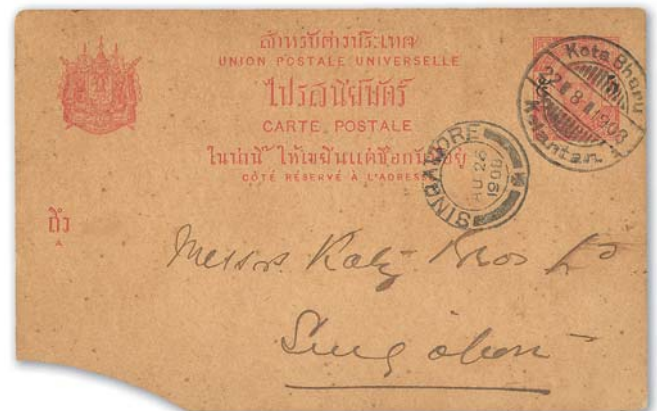 สำหรับต่างประเทศ
UNION POSTALE UNIVERSELLE
ไปรสนียบัตร์
CARTE POSTALE
ในน่านี้ ให้เขียนแต่ชื่อกับที่อยู่
CÔTÉ RÉSERVÉ À L'ADRESSE
Kota Bharu
22 8 1908
Kelantan.
SINGAPORE
AU 26
1908
ถึง
A
Messrs Katz Bros Ld
Singapore